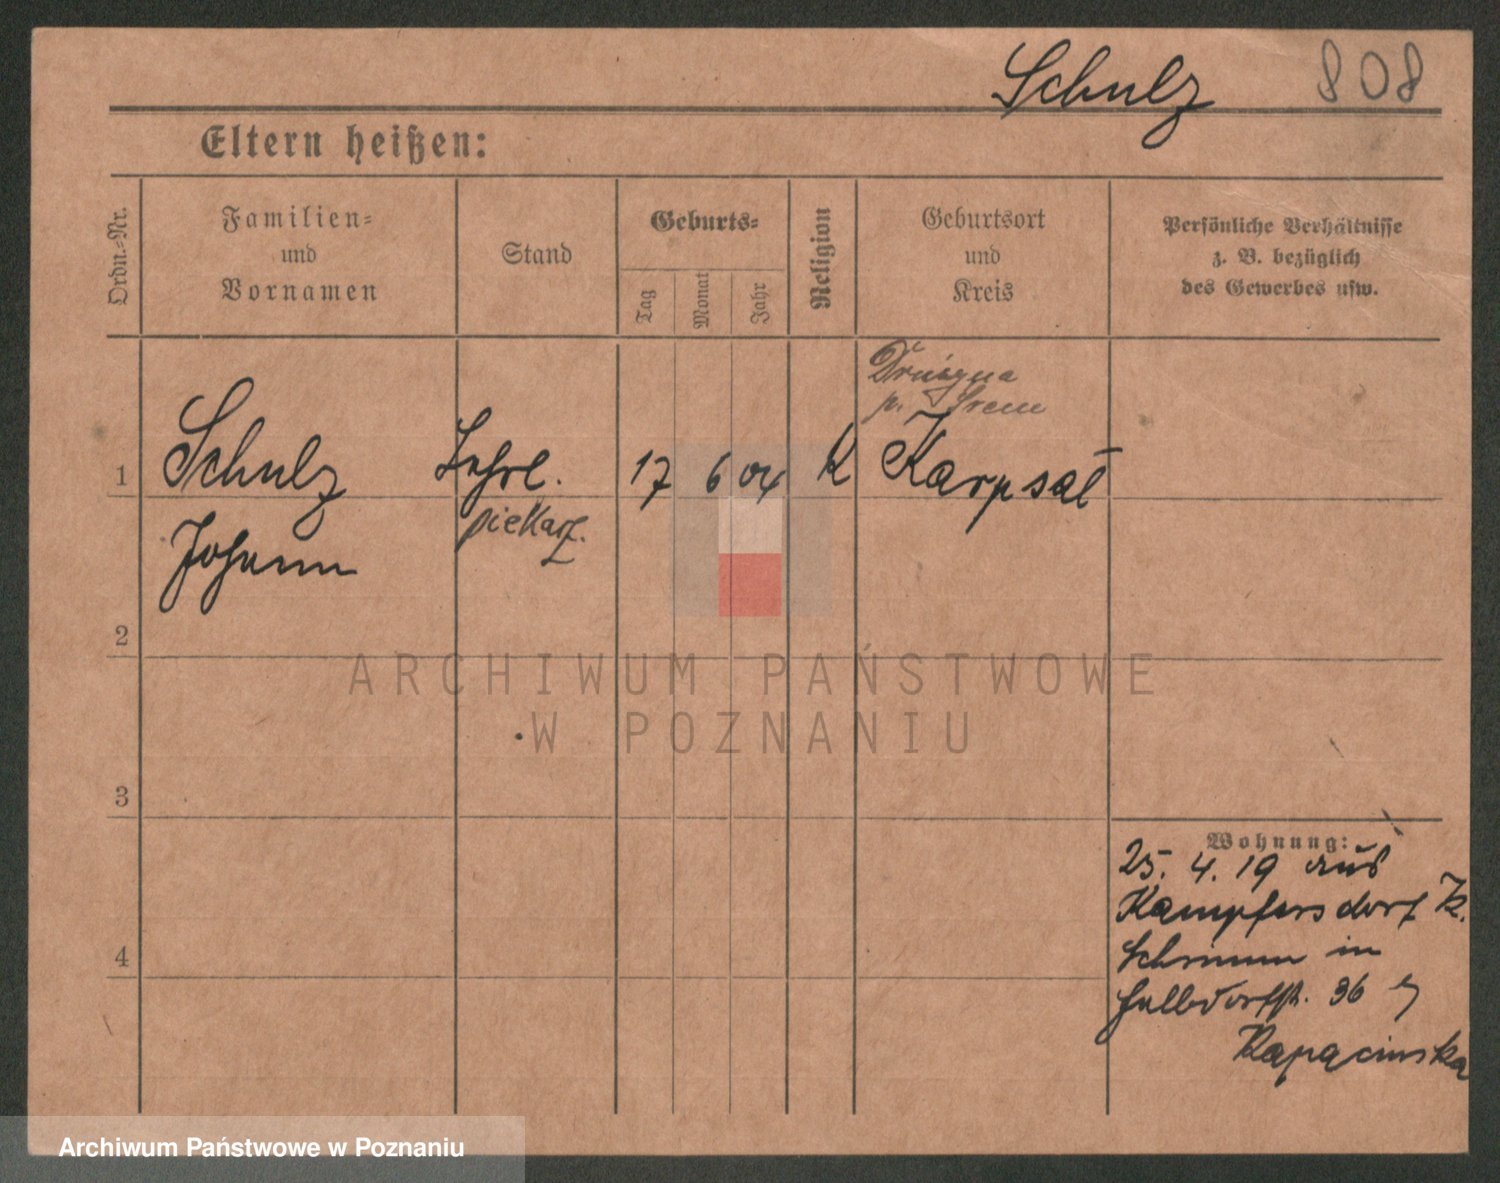 Schulz 808
Eltern heißen:
Ordn.-Nr.
Familien-
und
Vornamen
Stand
Geburts-
Tag
Monat
Jahr
Religion
Geburtsort
und
Kreis
Persönliche Verhältnisse
z. B. bezüglich
des Gewerbes usw.
p. Śrem
1 Schulz Lehrl. 17 6 04 K
Johann piekarz.
2
3
4
ARCHIWUM PAŃSTWOWE
W POZNANIU
Wohnung:
25. 4. 19 aus
Kampfersdorf K.
Schrimm in
Halbdorfstr. 36
Kapacinska
Archiwum Państwowe w Poznaniu